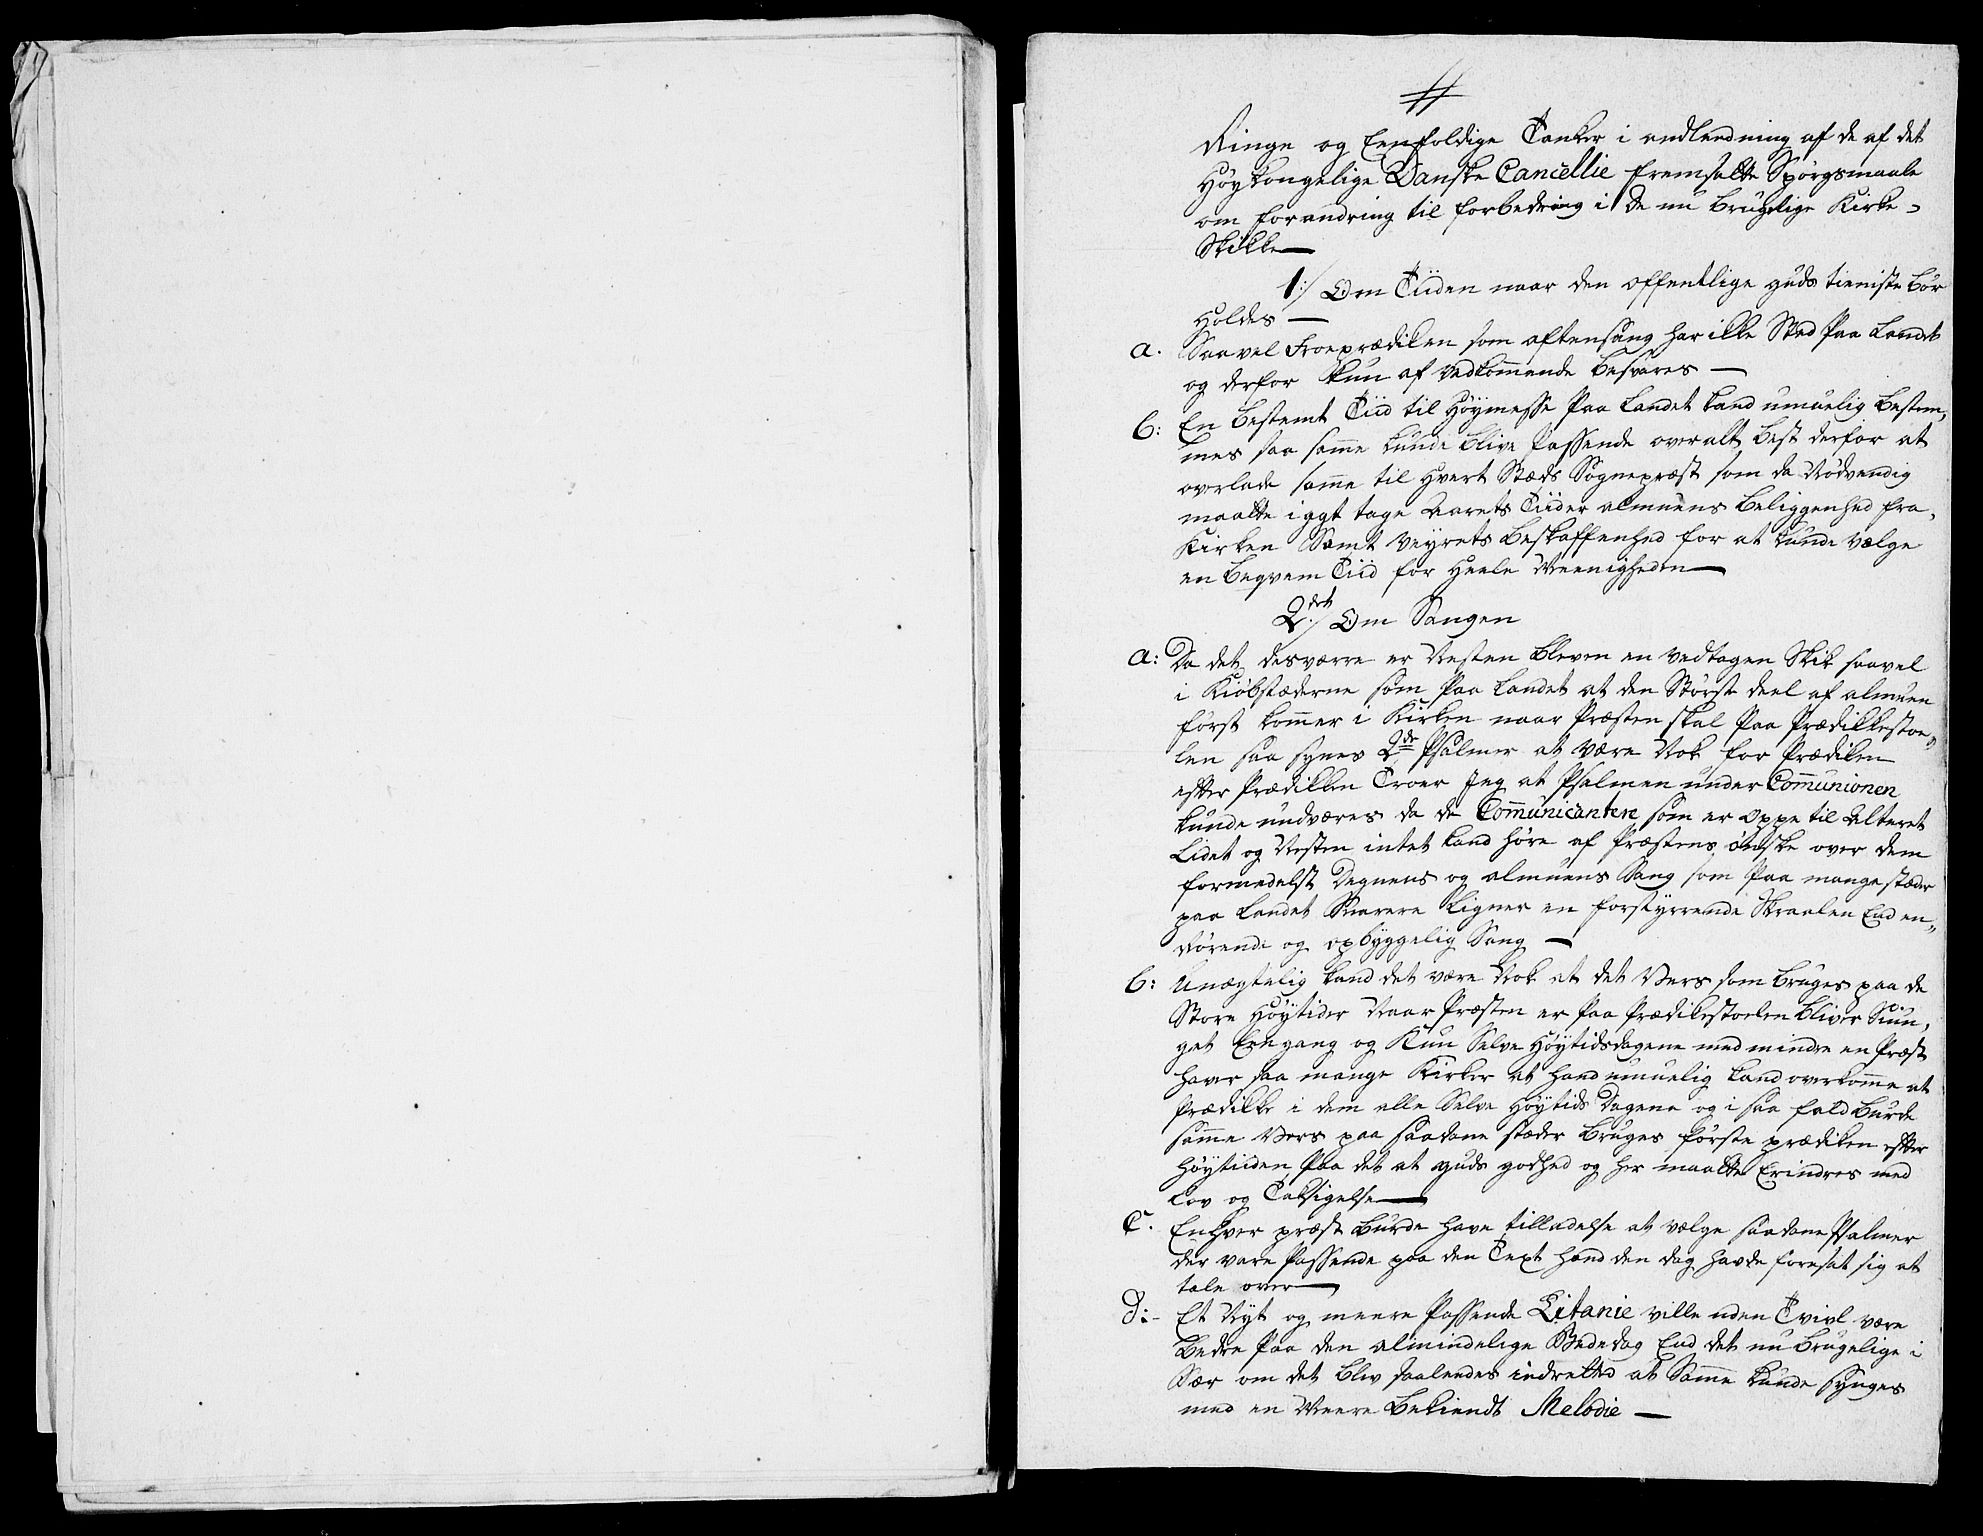 Ringe og Eenfoldige Tanker i andledning af de af det
Høykongelige Danske Cancellie fremsatte Spørgsmaale
om forandring til forbedring i de nu brugelige Kirke-
Skikke
1:/ Om Tiiden naar den offentlige guds tieniste bør
Holdes
a. Saavel Froeprædiken som aftensang har ikke Sted Paa Landet
og derfor kun af vedkommende besvares
b: En bestemt Tiid til Høymesse Paa Landet kand umuelig bestem,
mes saa samme kunde blive Passende overalt best derfor at
overlade samme til Hvert Stæds Sognepræst som da Nødvendig
maatte i agt tage Aarets Tiider almuens beliggenhed fra,
Kirken Samt Veyrets beskaffenhed for at kunde vælge
en beqvem Tiid for Heele Meenigheden
2det/ Om Sangen
a: Da det desværre er Nesten bleven en vedtagen Skik saavel
i Kiøbstæderne som Paa Landet at den Største deel af almuen
først kommer i Kirken naar Præsten skal Paa Prædikkestoe„
len saa synes 2de Psalmer at være Nok for Prædiken
efter Prædikken Troer Jeg at Psalmen under Communionen
kunde undværes da de Communicantere som er oppe til Alteret
Lidet og Nesten intet kand høre af Præstens ønske over dem
formedelst Degnens og almuens Sang som Paa mange stæder
paa Landet Snarere Ligner en forstyrrende Skraalen End en„
Rørende og opbyggelig Sang
b: Unægtelig kand det være Nok at det Vers som bruges paa de
Store Høytider Naar Præsten er Paa Prædikestoelen bliver Siun,
get Eengang og Kun Selve Høytidsdagene med mindre en Præst
haver saa mange Kirker at hand umuelig kand overkomme at
Prædikke i dem alle Selve Høytids Dagene og i saa fald burde
samme Vers paa saadane stæder bruges første prædiken efter
Høytiiden Paa det at guds godhed og her maatte Erindres med
Lov og Taksigelse
C. Enhver præst burde have tilladelse at vælge saadane Psalmer
der vare Passende paa den Text hand den dag havde foresat sig at
tale over
d:- Et Nyt og meere Passende Litanie ville uden Tvivl være
bedre Paa den almindelige Bededag End det nu brugelige i
Sær om det blev saaledes indrettet at Samme kunde synges
med en Meere bekiendt Melodie